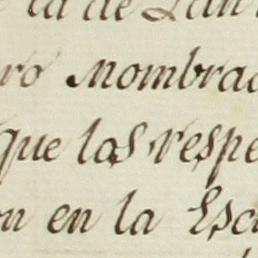 la de San
ro Nombrad
que las respe
on en la Esc